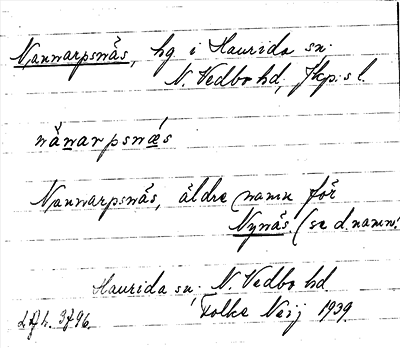 Nanwarpsnäs, hg i Haurida sn.
N. Vedbo hd, Jkp:s l.
nánwarpsnǽs
Nanwarpsnäs, äldre namn för
Nynäs (se d. namn.)
Haurida sn, N. Vedbo hd.
Folke Neij 1939.